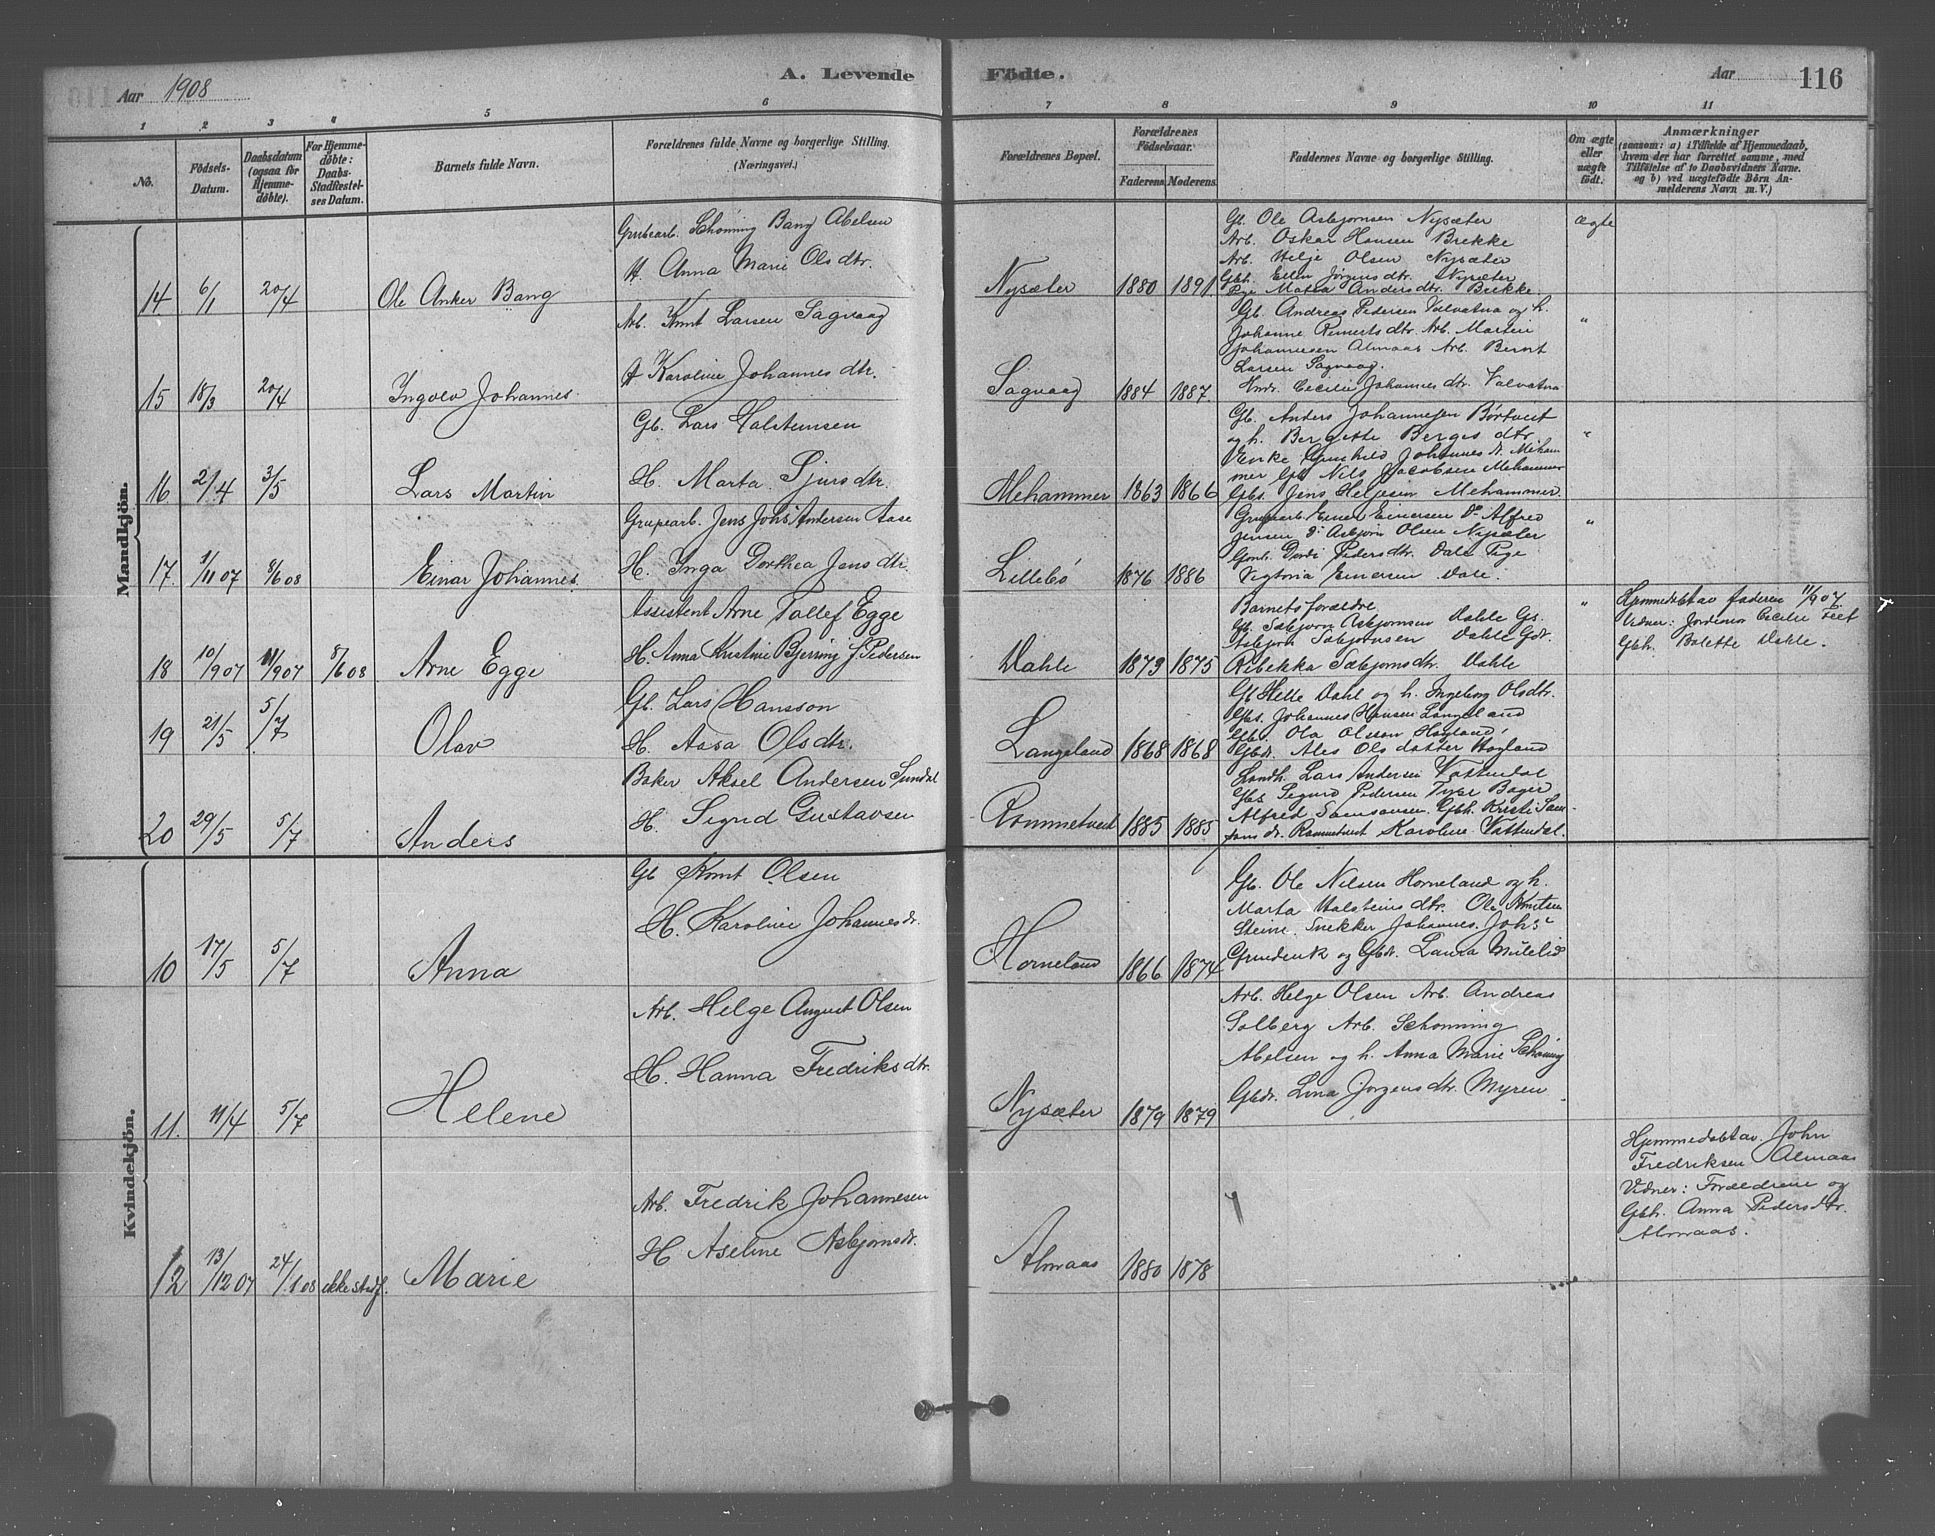 Aar 1908
A. Levende Födte.
Aar
116
1 2 3 4 5 6 7 8 9 10 11
No.
Födsels-Datum.
Daabsdatum (ogsaa for Hjemme-døbte).
For Hjemme-døbte: Daabs-Stadfæstelses Datum.
Barnets fulde Navn.
Forældrenes fulde Navne og borgerlige Stilling.
(Næringsvei.)
Forældrenes Bopæl.
Forældrenes Födselsaar.
Faderens Moderens.
Faddernes Navne og borgerlige Stilling.
Om ægte eller uægte födt.
Anmærkninger
(saasom: a) i Tilfælde af Hjemmedaab,
hvem der har forrettet samme, med
Tilföielse af to Daabsvidners Navne.
og b) ved uægtefödte Börn An-
melderens Navn m. V.)
Mandkjön.
14 6/1 20/4 Ole Anker Bang
Grubearb. Schönning Bang Abelsen
H Anna Marie Olsdtr.
Nysæter 1880 1891
Gb. Ole Asbjørnsen Nysæter
Arb. Oskar Hansen Brekke
Arb. Helje Olsen Nysæter
Gbh. Ellen Jørgensdtr. Nysæter
Pge Marta Andersdtr. Brekke.
Ægte
15 18/3 20/4 Ingolv Johannes.
Arb. Knut Larsen Sagvaag
H Karoline Johannesdtr.
Sagvaag 1884 1887.
Gb. Andreas Pedersen Valvatna og h.
Johanne Remertsdtr. Arb. Martin
Johannesen Almaas Arb. Bernt
Larsen Sagvaag.
Cecilie Johannesdtr. Valvatna
"
16 2/4 3/5 Lars Martin
Gb. Lars Halsteinsen
H. Marta Sjursdtr.
Mehammer 1863 1866
Gb. Anders Johannesen Börtveit
og h. Bergitte Bergesdtr.
Enke Gunhild Johannesdr. Meham
mer Gb. Nils Jacobsen Mehammer
Gbs. Jens Heljesen Mehammer.
"
17. 1/11 07 8/6 08 Einar Johannes.
Grupearb. Jens Johs Andersen Aase
H. Inga Dorthea Jensdtr.
Lillebö 1876 1886
Grupearb. Einar Einersen Do Alfred
Jensen Do Asbjørn Olsen Nysæter
Gerdi Pedersdtr. Dale Pige
Vigtoria Einersen Dale.
"
18 10/9 07 11/9 07 8/6 08 Arne Egge
Assistent Arne Tollef Egge
H. Anna Kristine Bjerring f. Pedersen
Dahle 1873 1875
Barnets forældre
Gb. Sæbjørn Asbjørnsen Dahle Gs.
Asbjørn Sæbjørnsen Dahle Gdr.
Rebekka Sæbjørnsdtr. Dahle
"
Hjemmedöbt av faderen 11/9 07.
Vidner: Jordmor Cecilie Teet
Gbh. Bolette Dahle.
19 21/5 5/7 Olav
Gb. Lars Hansson
H. Aasa Olsdtr.
Langeland 1868 1868
Gb. Helle Dahl og h. Ingeborg Olsdtr.
Gbs. Johannes Hansen Langeland
Gbs. Ola Olsson Hogland
Gbdr. Ales Olsdatter Hogland
20 29/5 5/7 Anders
Baker Aksel Andersen Sundal
H. Sigrid Gustavsen
Rommetveit 1885 1885
Landh. Lars Andersen Vattendal
Gbs Segurd Pedersen Tyse Bager
Alfred Samsonsen Gbh. Kristi Sam-
sons dr. Rommetveit Karoline Vattendal.
Kvindekjön.
10 17/5 5/7 Anna
Gb Knut Olsen
H. Karoline Johannesdr.
Horneland 1866 1874
Gb. Ole Nilsen Horneland og h.
Marta Halsteinsdtr. Ole Knutsen
Steine. Snekker Johannes. Johs
og Gbdr. Laura Mulelid
11. 11/4 5/7 Helene
Arb. Helge August Olsen
H. Hanna Fredriksdtr.
Nysæter 1879 1879
Arb. Helge Olsen Arb. Andreas
Solberg Arb. Schönning
Abelsen og h. Anna Marie Schöning
Gbdr. Lina Jørgensdtr. Myren
12 13/12 07 24/1 08 ikke stadf. Marie
Arb. Fredrik Johannesen
H Aseline Asbjørnsdr.
Almaas 1880 1878
Hjemmedöbt av. John
Fredriksen Almaas
Vidner: Forældrene og
Gbh. Anna Pedersdtr.
Almaas.